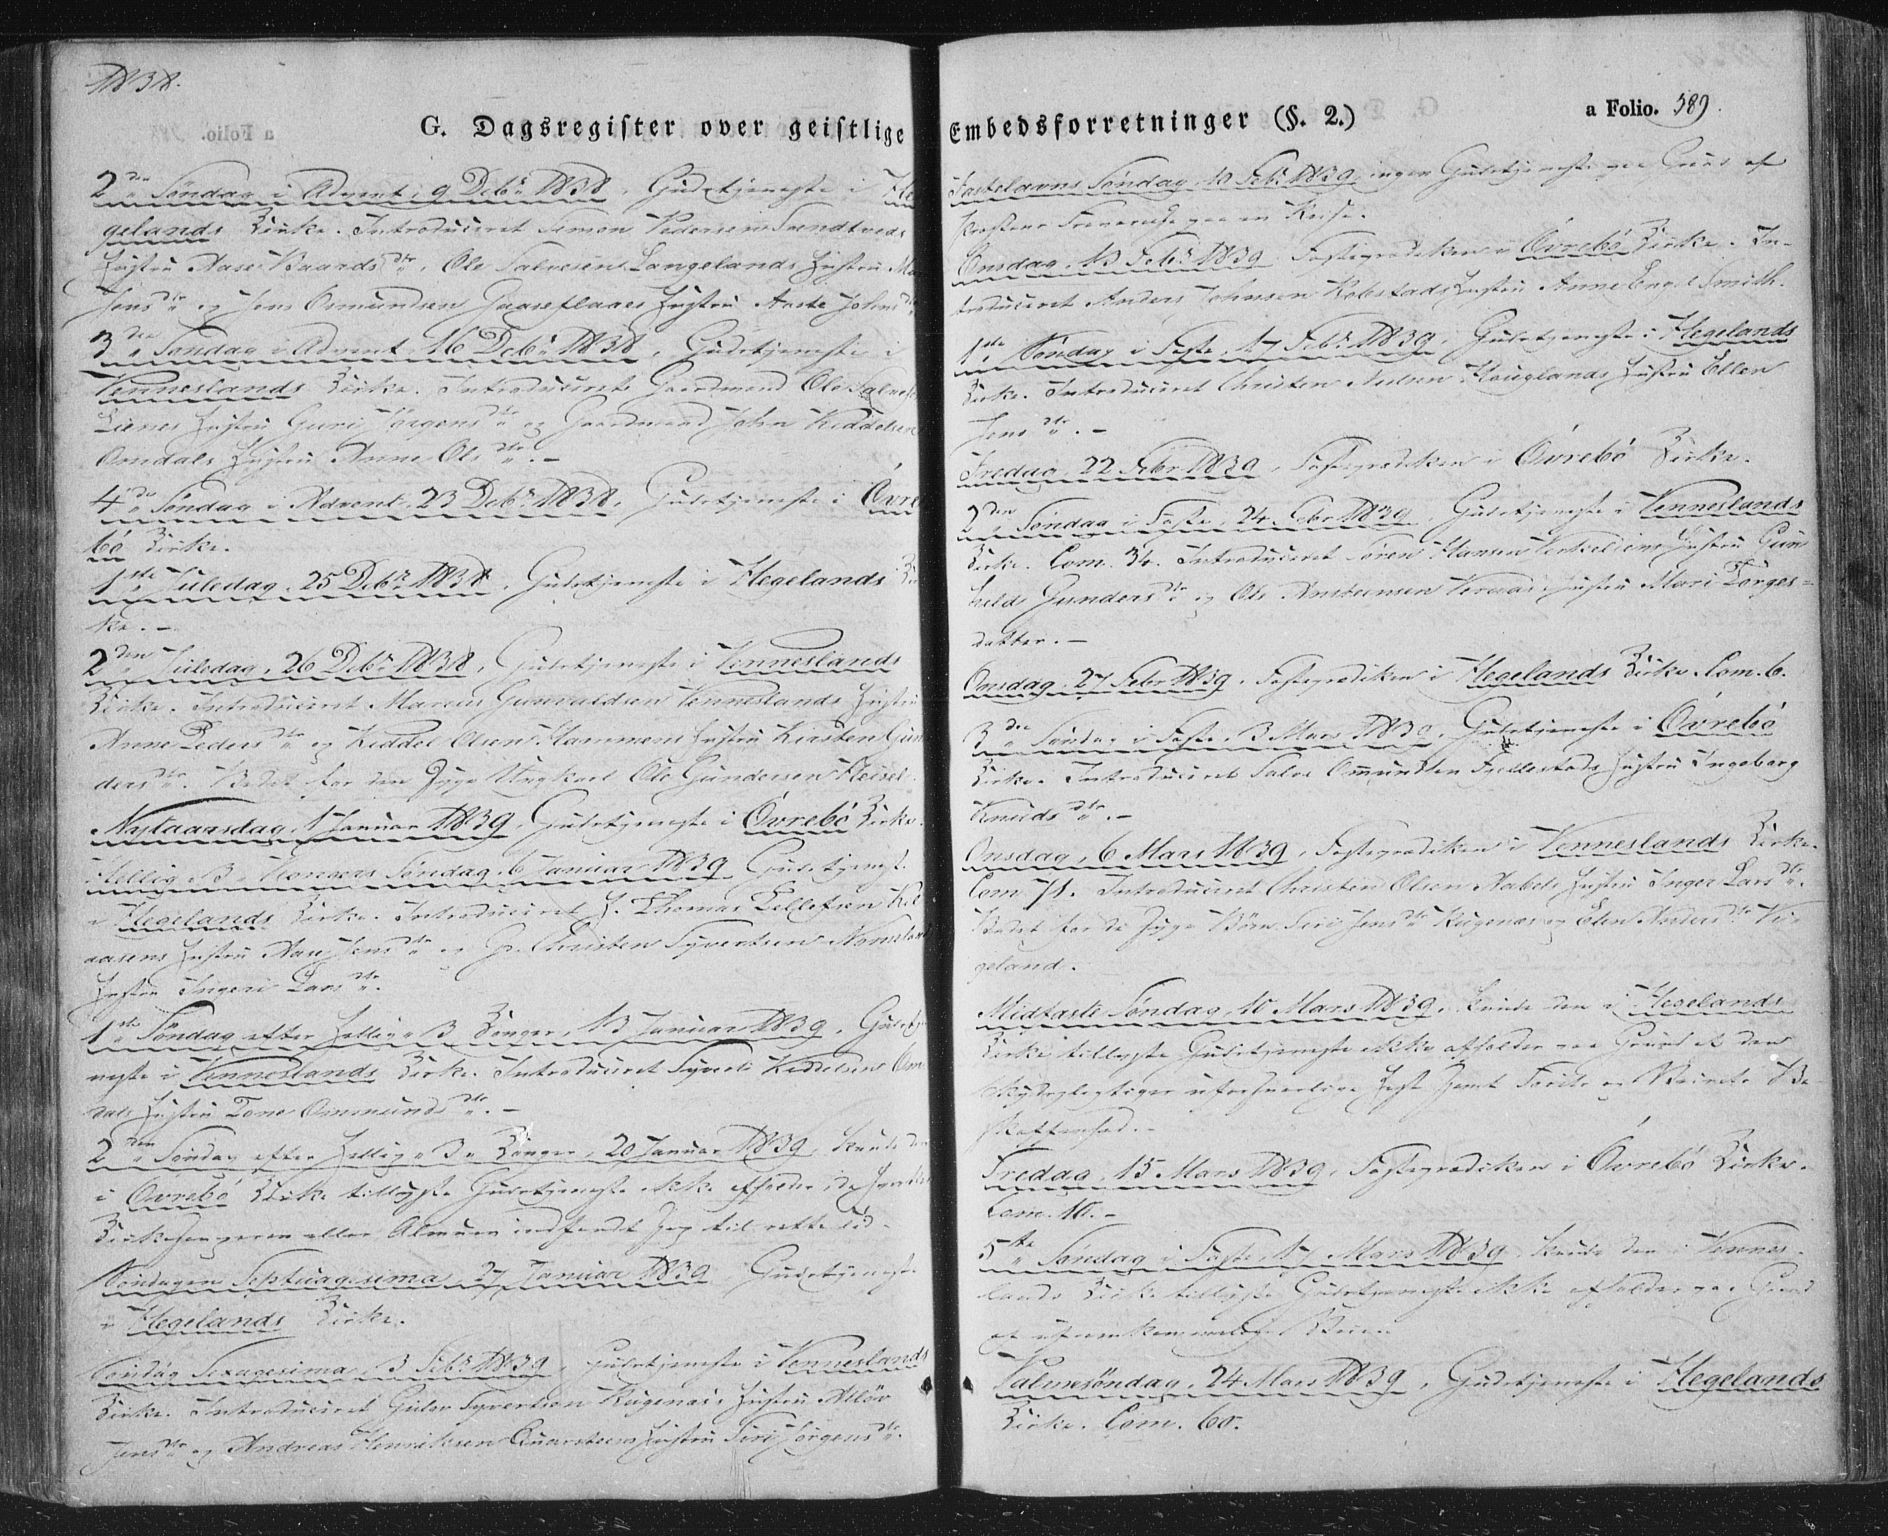 1838.
G. Dagsregister over geistlige
2den Søndag i Advent, 9 Debr 1838, Gudstjeneste i He-
gelands Kirke. Introduceret Simon Pedersen
Hustru Aase Baardsdtr, Ole Salvesen Langelands Hustru
Jensdtr og Jens Osmundsen Hustru Aaste Johnsdtr
3die Søndag i Advent, 16 Debr 1838, Gudstjeneste i
Venneslands Kirke. Introduceret Gaardmand Ole Salves
Lienes Hustru Guri Jörgensdtr og Gaardmand John Kiddelsen
Omdals Hustru Anne Olsdtr. -
4de Søndag i Advent, 23 Debr 1838, Gudstjeneste i Øvre
bö Kirke.
1ste Juledag, 25 Debr 1838, Gudstjeneste i Hegelands Kir
ke. -
2den Juledag, 26 Debr 1838, Gudstjeneste i Venneslands
Kirke. Introduceret Marcus Gunvaldsen Venneslands Hustru
Anne Pedersdtr og Kiddel Olsen Hammens Hustru Kirsten Gun
dersdtr. Bedet for den syge Ungkarl Ole Gundersen Heisel.
Nytaarsdag, 1 Januar 1839, Gudstjeneste i Øvrebö Kirke.
Hellig 3 Kongers Søndag, 6 Januar 1839, Gudstjeneste
i Hegelands Kirke. Introduceret Thomas Tellefsen Kil
aasens Hustru Aase Jensdtr og Christen Syvertsen Nomelands
Hustru Ingeri Larsdtr.
1ste Søndag efter Hellig 3 Konger, 13 Januar 1839, Gudstje
neste i Venneslands Kirke. Introduceret Syvert Kiddelsen Om
dals Hustru Tone Ommundsdtr. -
2den Søndag efter Hellig 3 Konger, 20 Januar 1839, kunde den
i Øvrebö Kirke tillyste Gudstjeneste ikke afholdes, da hverken
Kirkesangeren eller Almuen indfandt sig til rette Tid.
Søndagen Septuagesima, 27 Januar 1839, Gudstjeneste
i Hegelands Kirke.
Søndag Sexagesima, 3 Febr 1839, Gudstjeneste i Venneslands
Kirke. Introduceret Gulov Syvertsen Rugenæs's Hustru
Jensdtr og Andreas Henriksen Quarsteens Hustru Siri Jörgensdtr.
Embedsforretninger (§. 2.)
a Folio. 389.
Fastelavns Søndag, 10 Febr 1839, ingen Gudstjeneste paa Grund af
Præstens Fraværelse paa en Reise.
Onsdag, 13 Febr 1839, Fasteprædiken i Øvrebö Kirke. In-
troduceret Anders Johnsen Robstads Hustru Anne Engel Smith.
1ste Søndag i Faste, 17 Febr 1839, Gudstjeneste i Hegelands
Kirke. Introduceret Christen Nielsen Houglands Hustru Ellen
Jensdtr. -
Fredag, 22 Febr 1839, Fasteprædiken i Øvrebö Kirke.
2den Søndag i Faste, 24 Febr 1839, Gudstjeneste i Venneslands
Kirke. Com. 34. Introduceret Sören Hansen Hustru Gun
hild Gundersdtr og Ole Hustru Mari Törges-
datter. -
Onsdag, 27 Febr 1839, Fasteprædiken i Hegelands Kirke. Com. 6.
3die Søndag i Faste, 3 Mars 1839, Gudstjeneste i Øvrebö
Kirke. Introduceret Salve Omundsen Fjellestads Hustru Ingeborg
Knudsdtr. -
Onsdag, 6 Mars 1839, Fasteprædiken i Venneslands Kirke.
Com. Introduceret Christen Olsen Hustru Inger Larsdtr.
Bedet for de syge Børn Siri Jensdtr Rugenæs og Elen Andersdtr Vi-
geland.
Midfaste Søndag, 10 Mars 1839, kunde den i Hegelands
Kirke tillyste Gudstjeneste ikke afholdes paa Grund af den
uforsvarlige Hest samt Førets og Veirets Be-
skaffenhed. -
Fredag, 15 Mars 1839, Fasteprædiken i Øvrebö Kirke.
Com. 10. -
5te Søndag i Faste, 17 Mars 1839, kunde den i Vennes-
lands Kirke tillyste Gudstjeneste ikke afholdes paa Grund
af ufremkommelige Veie.
Palmesøndag, 24 Mars 1839, Gudstjeneste i Hegelands
Kirke. Com. 60.